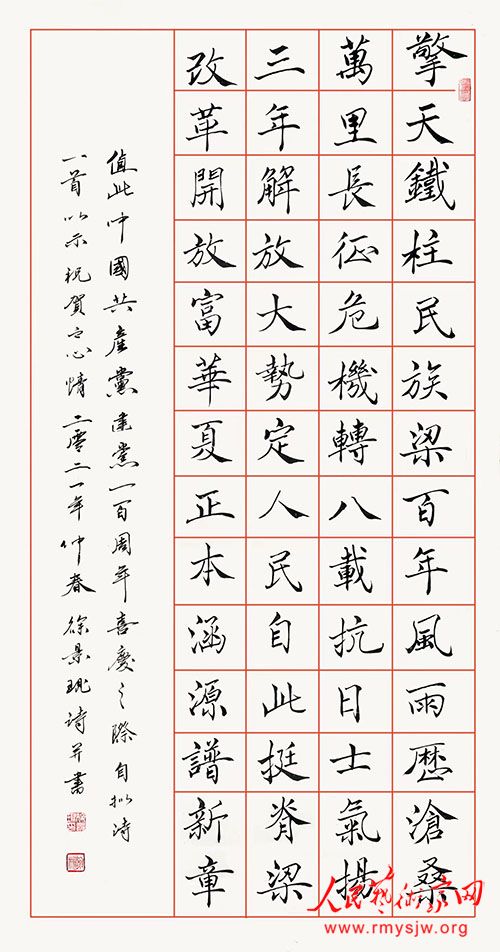 擎天鐵柱民族梁百年風雨歷滄桑
萬里長征危機轉八載抗日士氣揚
三年解放大勢定人民自此挺脊梁
改革開放富華夏正本涵源譜新章
值此中國共產黨建党一百周年喜慶之際自拟诗
一首以示祝賀之心情二零二一年仲春徐景詩并書
人民藝術家网
www.rmysjw.org